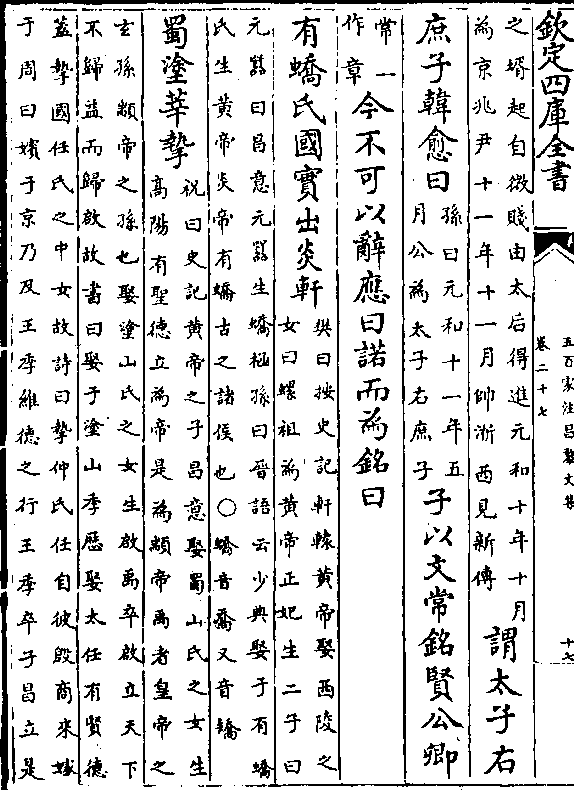 欽定四庫全書
五百家注昌黎文集
卷二十七
十七
之壻起自微賤由太后得進元和十年十月
為京兆尹十一年十一月帥淅西見新傳
謂太子右
庶子韓愈曰
孫曰元和十一年五
月公為太子右庶子
子以文常銘賢公卿
常一
作章
今不可以辭應曰諾而為銘曰
有蟜氏國實出炎軒
樊曰按史記軒轅黄帝娶西陵之
女曰嫘祖為黄帝正妃生二子曰
元囂曰昌意元囂生蟜極孫曰晉語云少典娶于有蟜
氏生黄帝炎帝有蟜古之諸侯也○蟜音喬又音矯
蜀塗莘摯
祝曰史記黄帝之子昌意娶蜀山氏之女生
高陽有聖德立為帝是為顓帝禹者皇帝之
玄孫顓帝之孫也娶塗山氏之女生啟禹卒啟立天下
不歸益而歸啟故書曰娶于塗山季歷娶太任有賢德
蓋摯國任氏之中女故詩曰摯仲氏任自彼殷商來嫁
于周曰嬪于京乃及王季維德之行王季卒子昌立是